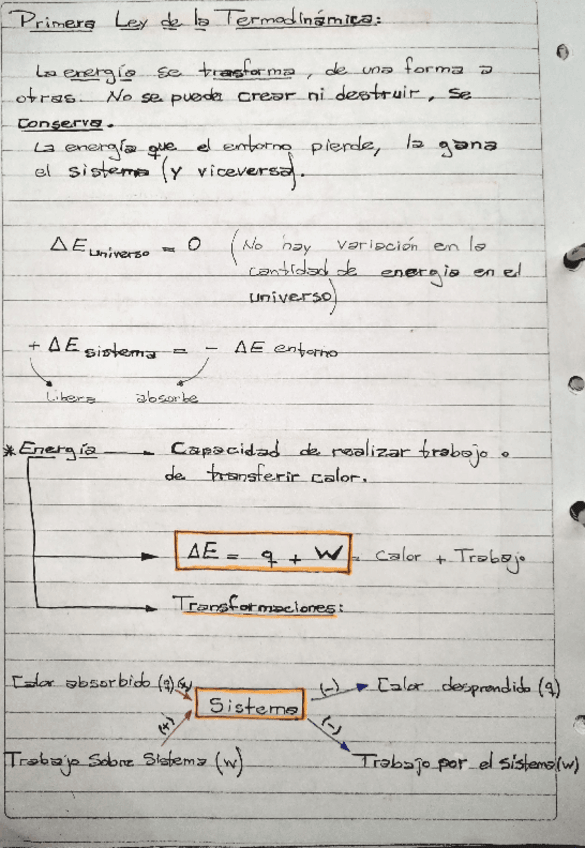 Primera Ley de la Termodinámica:
La energía se trasforma, de una forma a
otras. No se puede crear ni destruir, se
conserva.
La energía que el entorno pierde, la gana
el sistema (y viceversa).
ΔE universo = 0 (No hay variación en la
cantidad de energia en el
universo)
+ ΔE sistema = - ΔE entorno
libera absorbe
*Energía → Capacidad de realizar trabajo o
de transferir calor.
ΔE = q + W = Calor + Trabajo
Transformaciones:
Calor absorbido (q) (+) (-) Calor desprendido (q)
Sistema
(+) (-)
Trabajo Sobre Sistema (w) Trabajo por el sistema (w)